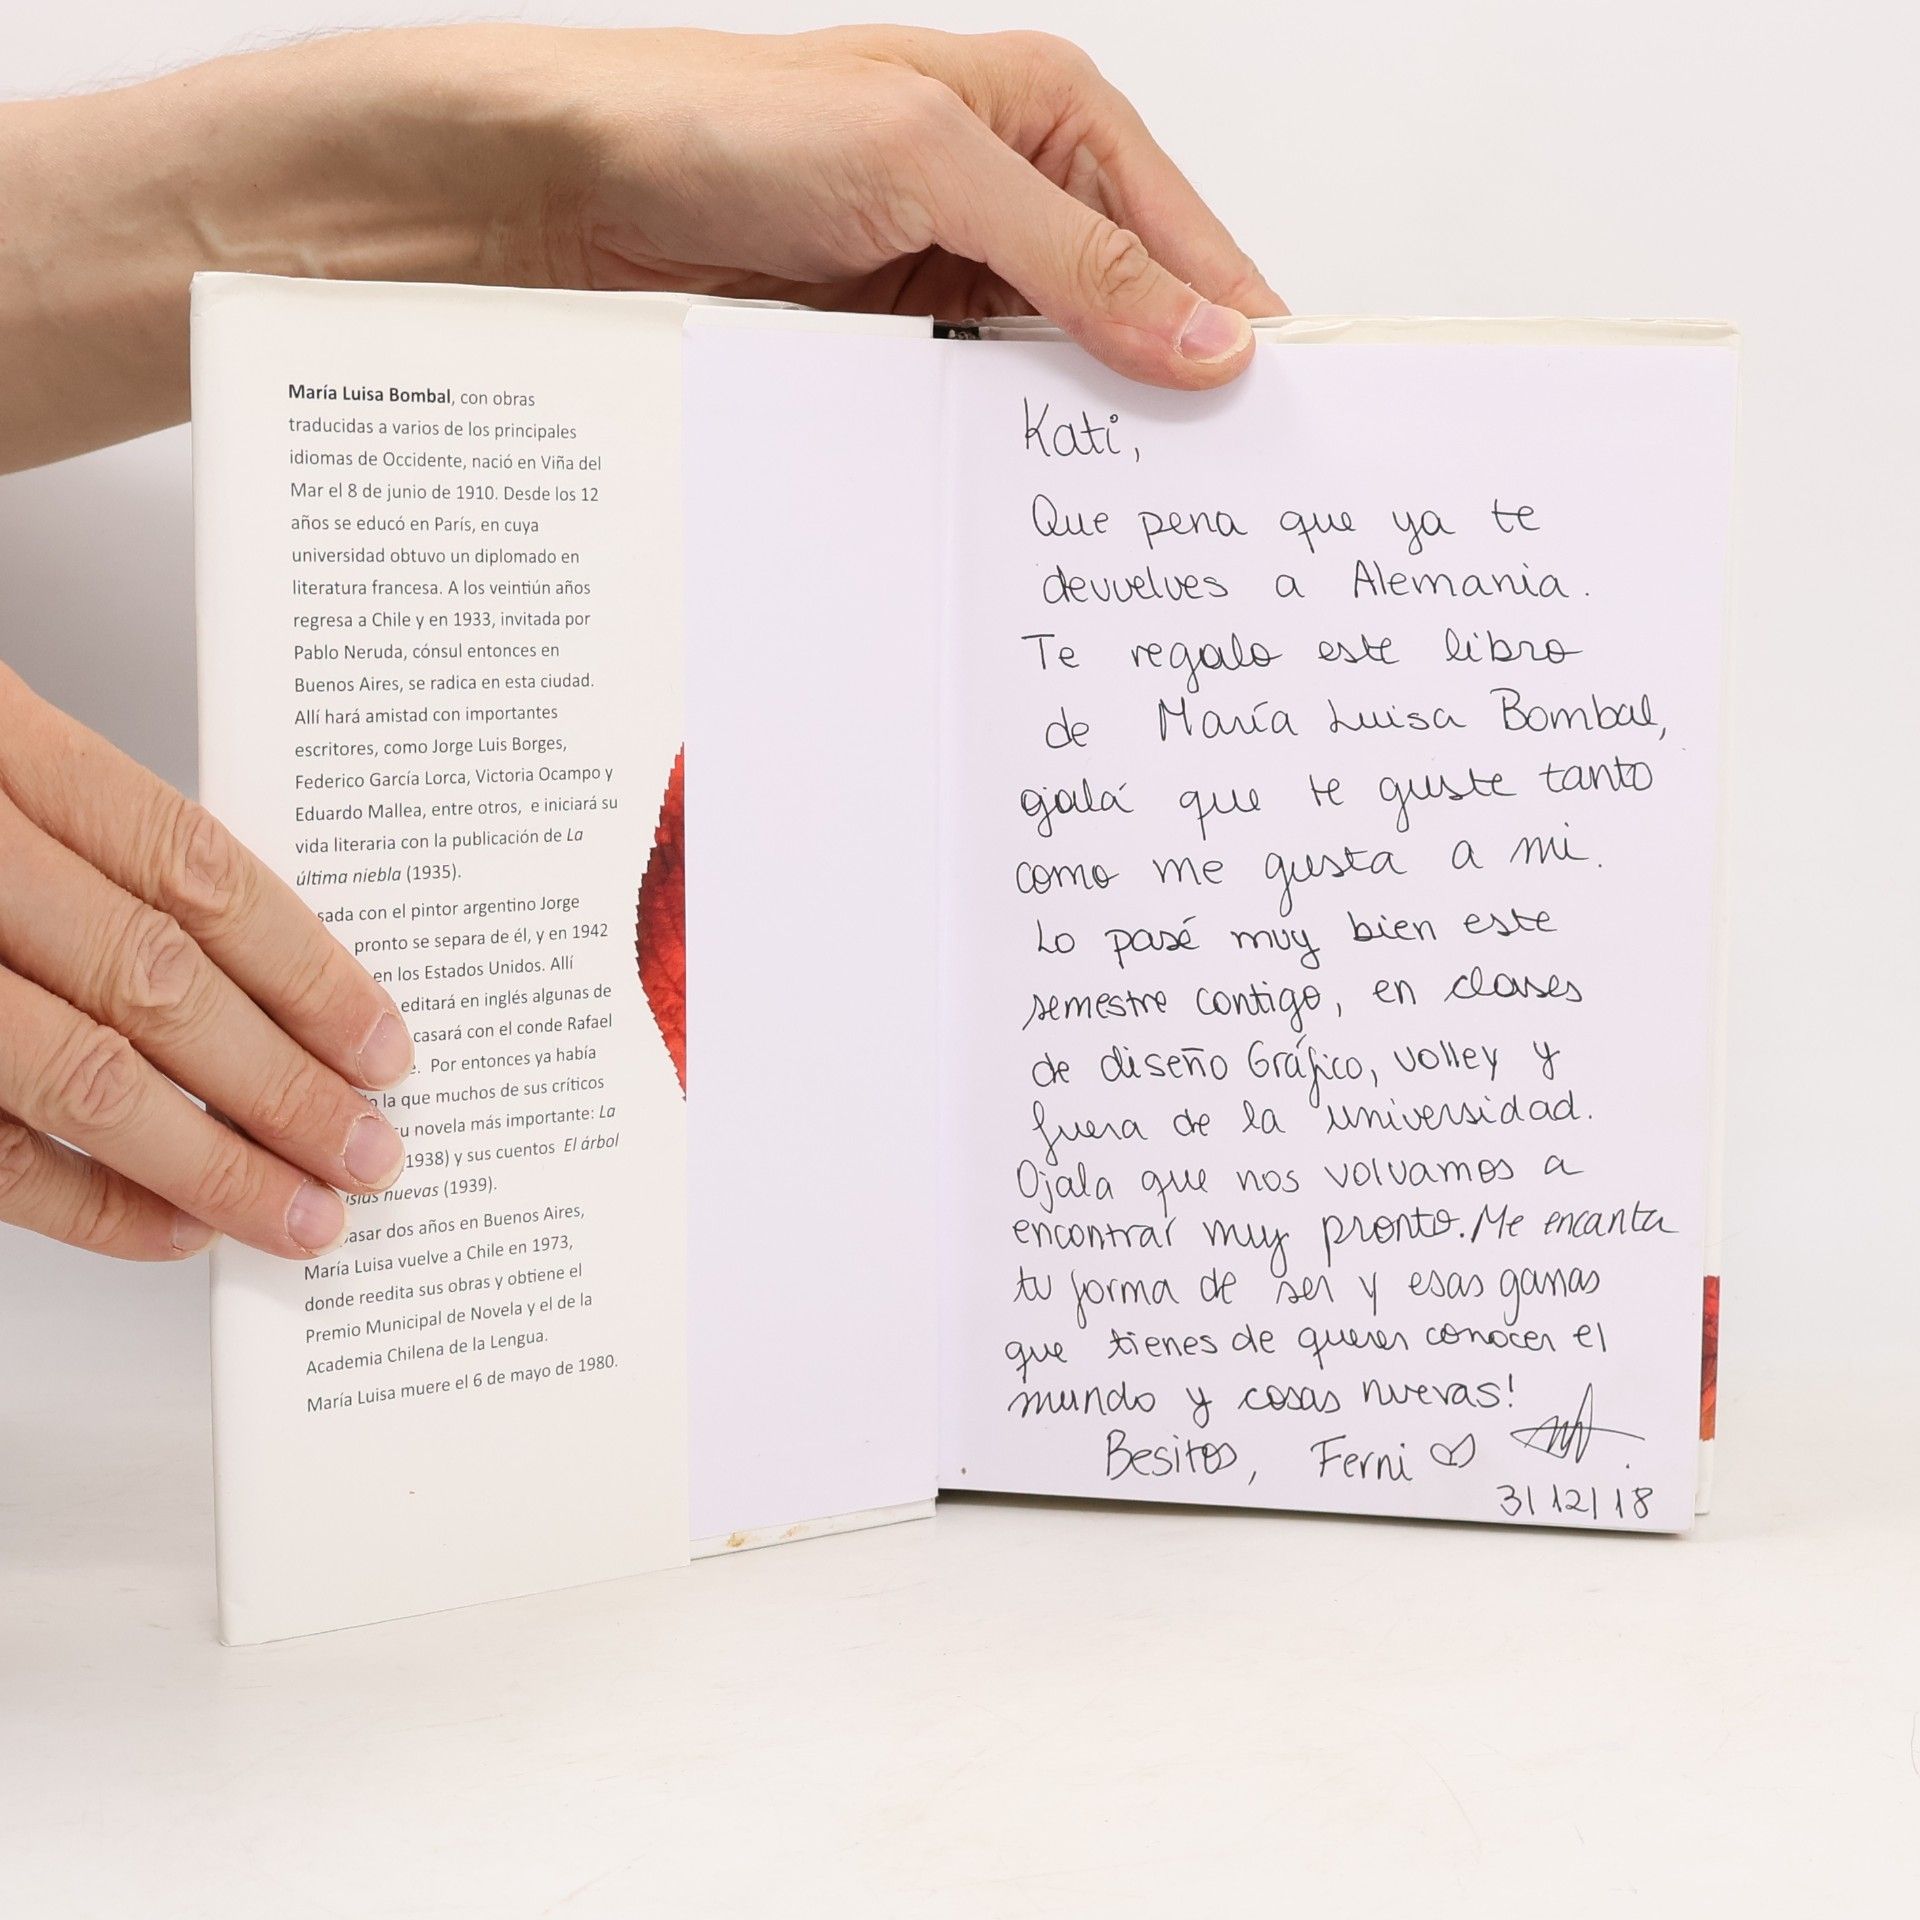 María Luisa Bombal, con obras
traducidas a varios de los principales
idiomas de Occidente, nació en Viña del
Mar el 8 de junio de 1910. Desde los 12
años se educó en París, en cuya
universidad obtuvo un diplomado en
literatura francesa. A los veintiún años
regresa a Chile y en 1933, invitada por
Pablo Neruda, cónsul entonces en
Buenos Aires, se radica en esta ciudad.
Allí hará amistad con importantes
escritores, como Jorge Luis Borges,
Federico García Lorca, Victoria Ocampo y
Eduardo Mallea, entre otros, e iniciará su
vida literaria con la publicación de La
última niebla (1935).
sada con el pintor argentino Jorge
pronto se separa de él, y en 1942
en los Estados Unidos. Allí
editará en inglés algunas de
casará con el conde Rafael
Por entonces ya había
la que muchos de sus críticos
su novela más importante: La
1938) y sus cuentos El árbol
islas nuevas (1939).
pasar dos años en Buenos Aires,
María Luisa vuelve a Chile en 1973,
donde reedita sus obras y obtiene el
Premio Municipal de Novela y el de la
Academia Chilena de la Lengua.
María Luisa muere el 6 de mayo de 1980.
Kati,
Que pena que ya te
devuelves a Alemania.
Te regalo este libro
de María Luisa Bombal,
ojalá que te guste tanto
como me gusta a mi.
Lo pasé muy bien este
semestre contigo, en clases
de diseño Gráfico, volley y
fuera de la universidad.
Ojala que nos volvamos a
encontrar muy pronto. Me encanta
tu forma de ser y esas ganas
que tienes de querer conocer el
mundo y cosas nuevas!
Besitos, Ferni
31/12/18